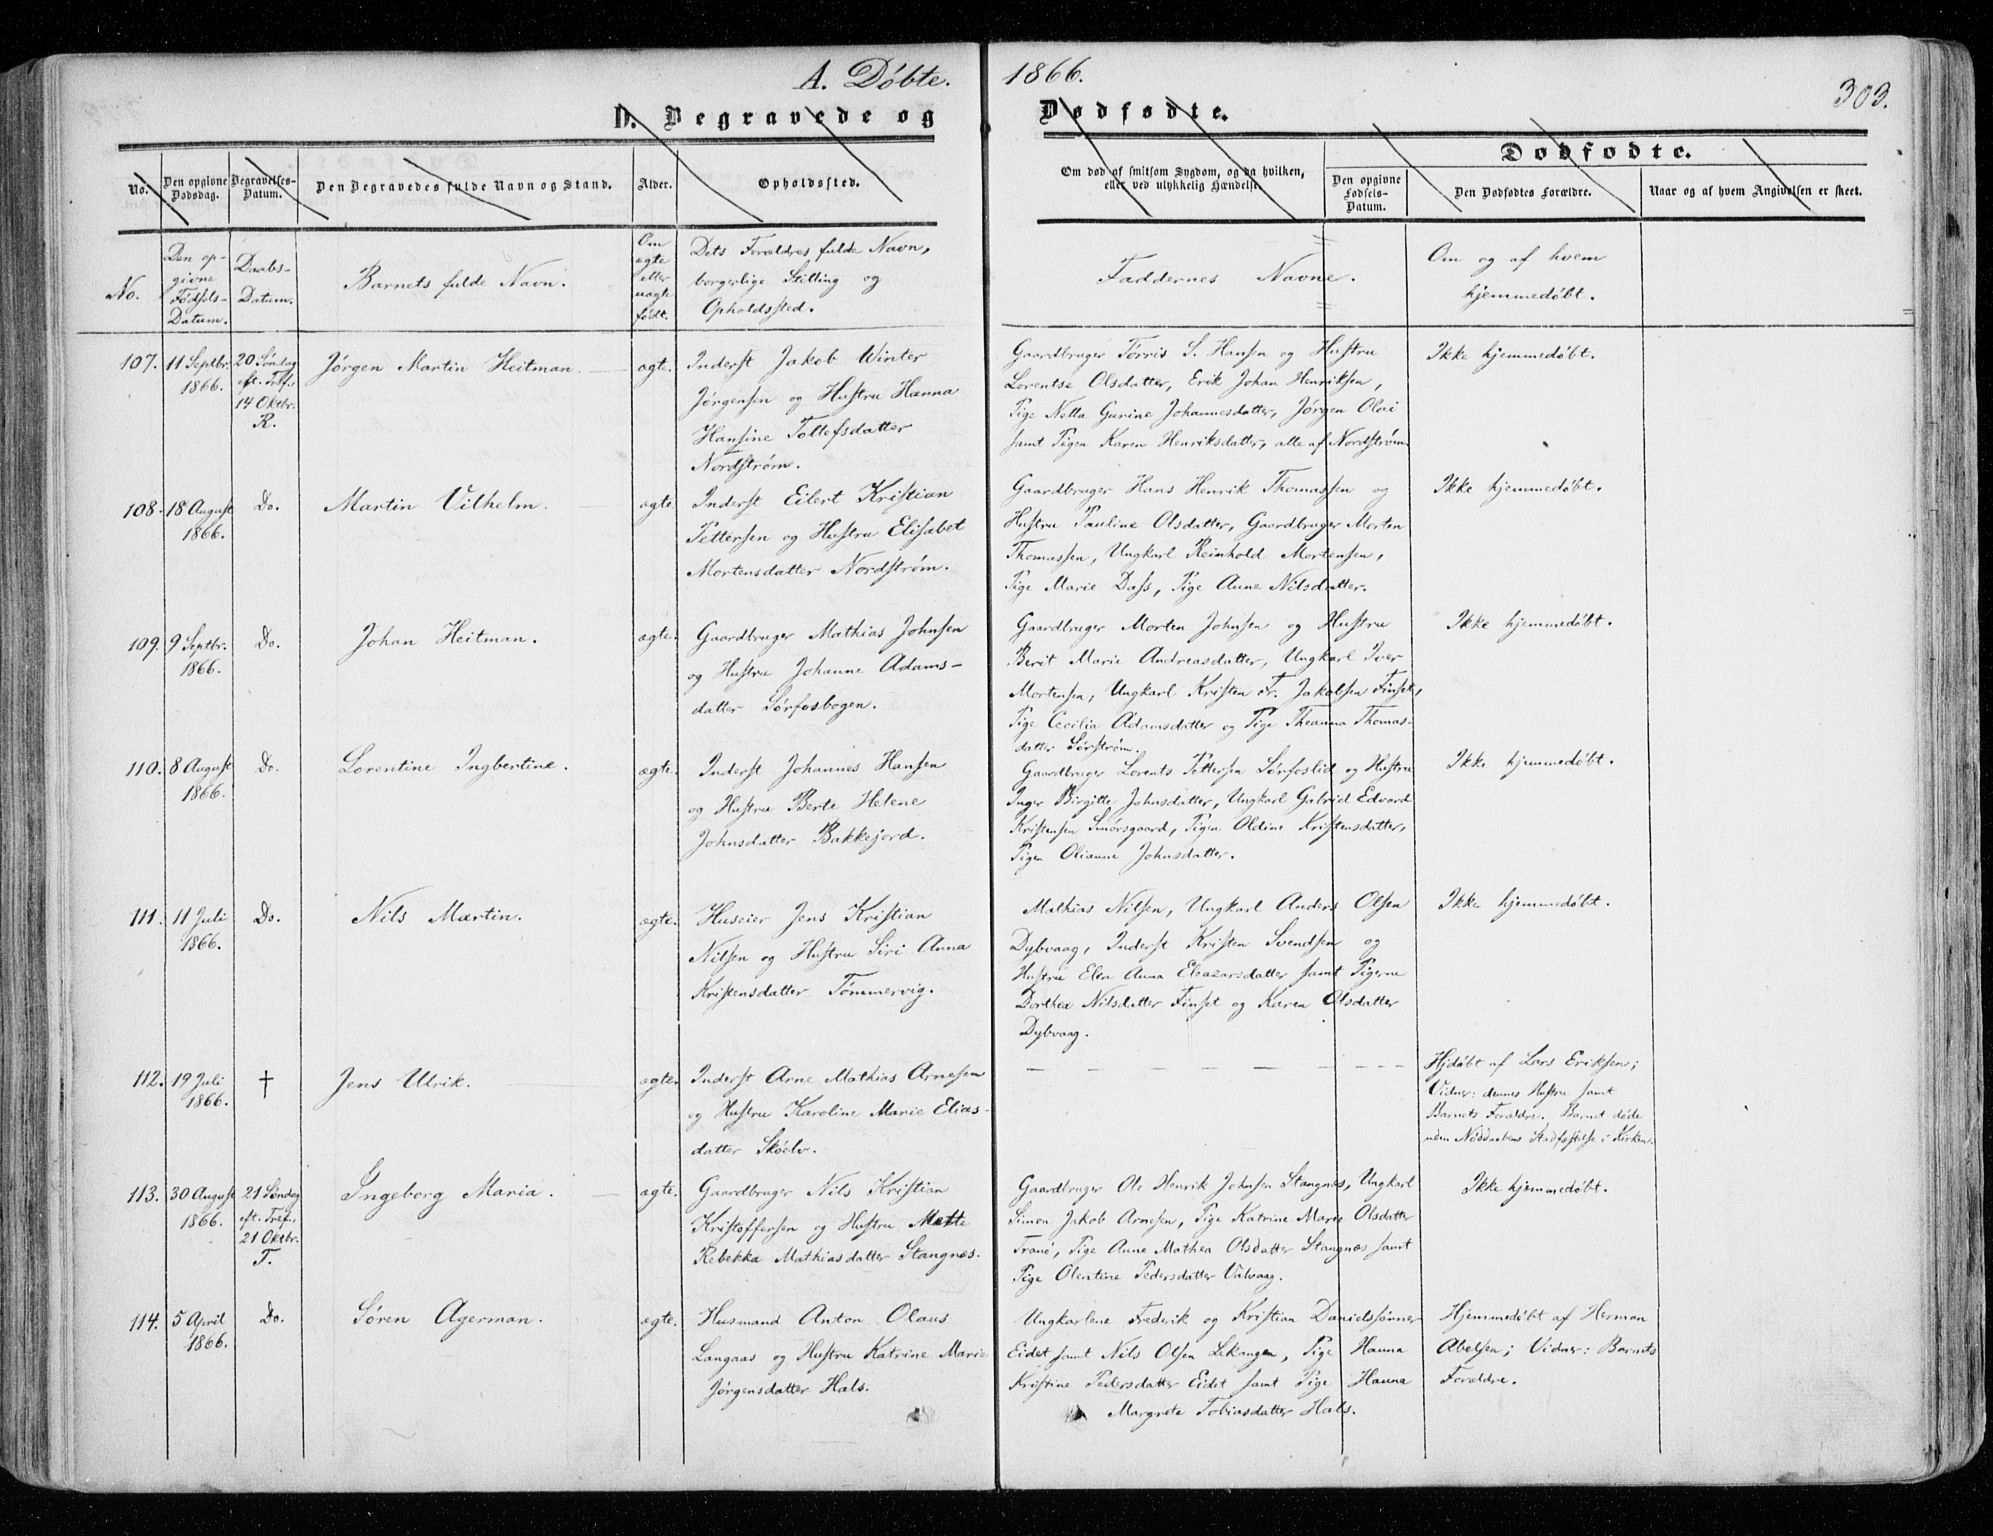 A. Døbte. 1866.
303.
D. Begravede og Dødfødte.
Dødfødte.
No.
Den opgivne Dødsdag.
Begravelses-Datum.
Den Begravedes fulde Navn og Stand.
Alder.
Opholdssted.
Om død af smitsom Sygdom, og da hvilken,
eller ved ulykkelig Hændelse.
Den opgivne Fødsels-Datum.
Den Dødfødtes Forældre.
Naar og af hvem Angivelsen er skeet.
No.
Den op-
givne
Fødsels-
Datum.
Daabs-
Datum.
Barnets fulde Navn.
Om
ægte
eller
uægte
født.
Dets Forældres fulde Navn,
borgerlige Stilling og
Opholdssted.
Faddernes Navne.
Om og af hvem
hjemmedøbt.
107. 11 Septbr.
1866.
20 Søndag
eft. Tref.
14 Oktbr.
R.
Jørgen Martin Heitman.
ægte.
Inderst Jakob Winter
Jørgensen og Hustru Hanna
Hansine Tollefsdatter
Nordstrøm.
Gaardbruger Tørris S. Hansen og Hustru
Lorentse Olsdatter, Erik Johan Henriksen,
Pige Netta Gurine Johannesdatter, Jørgen Olai
samt Pigen Karen Henriksdatter, alle af Nordstrøm.
Ikke hjemmedøbt.
108. 18 August
1866.
Do.
Martin Vilhelm.
ægte.
Inderst Eilert Kristian
Pettersen og Hustru Elisabet
Mortensdatter Nordstrøm.
Gaardbruger Hans Henrik Thomassen og
Hustru Pauline Olsdatter, Gaardbruger Morten
Thomassen, Ungkarl Reinhold Mortensen,
Pige Marie Dass, Pige Anne Nilsdatter.
Ikke hjemmedøbt.
109. 9 Septbr.
1866.
Do.
Johan Heitman.
ægte.
Gaardbruger Mathias Johnsen
og Hustru Johanne Adams-
datter Sørfosbogen.
Gaardbruger Morten Johnsen og Hustru
Berit Marie Andreasdatter, Ungkarl Iver
Mortensen, Ungkarl Kristen Fr. Jakobsen Finset,
Pige Cecilia Adamsdatter og Pige Theanna Thomas-
datter Sørstrøm.
Ikke hjemmedøbt.
110. 8 August
1866.
Do.
Lorentine Ingbertine.
ægte.
Inderst Johannes Hansen
og Hustru Berte Helene
Johnsdatter Bakkejord.
Gaardbruger Lorents Pettersen Sørfoslid og Hustru
Inger Birgitte Johnsdatter, Ungkarl Gabriel Edvard
Kristensen Smørsgaard, Pigen Oldine Kristensdatter,
Pigen Olianne Johnsdatter.
Ikke hjemmedøbt.
111. 11 Juli
1866.
Do.
Nils Martin.
ægte.
Huseier Jens Kristian
Nilsen og Hustru Siri Anna
Kristensdatter Tømmervig.
Mathias Nilsen, Ungkarl Anders Olsen
Dybvaag, Inderst Kristen Svendsen og
Hustru Elen Anna Eleazarsdatter samt Pigerne
Dorthea Nilsdatter Finset og Karen Olsdatter
Dybvaag.
Ikke hjemmedøbt.
112. 19 Juli
1866.
†
Jens Ulrik.
ægte.
Inderst Arne Mathias Arnesen
og Hustru Karoline Marie Elias-
datter Skøelv.
Hjdøbt af Lars Eriksen;
Vidner: dennes Hustru samt
Barnets Forældre. Barnet døde
uden Nøddaabens Stadfæstelse i Kirken.
113. 30 August
1866.
21 Søndag
eft. Tref.
21 Oktbr.
T.
Ingeborg Maria.
ægte.
Gaardbruger Nils Kristian
Kristoffersen og Hustru Mette
Rebekka Mathiasdatter Stangnes.
Gaardbruger Ole Henrik Johnsen Stangnes, Ungkarl
Simon Jakob Arnesen, Pige Katrine Marie Olsdatter
Tranø, Pige Anne Mathea Olsdatter Stangnes samt
Pige Olentine Pedersdatter Valvaag.
Ikke hjemmedøbt.
114. 5 April
1866.
Do.
Søren Agerman.
ægte.
Husmand Anton Olaus
Langaas og Hustru Katrine Marie
Jørgensdatter Hals.
Ungkarlene Frederik og Kristian Danielssønner
Eidet samt Nils Olsen Lekangen, Pige Hanna
Kristine Pedersdatter Eidet samt Pige Hanna
Margrete Tobiasdatter Hals.
Hjemmedøbt af Herman
Abelsen; Vidner: Barnets
Forældre.